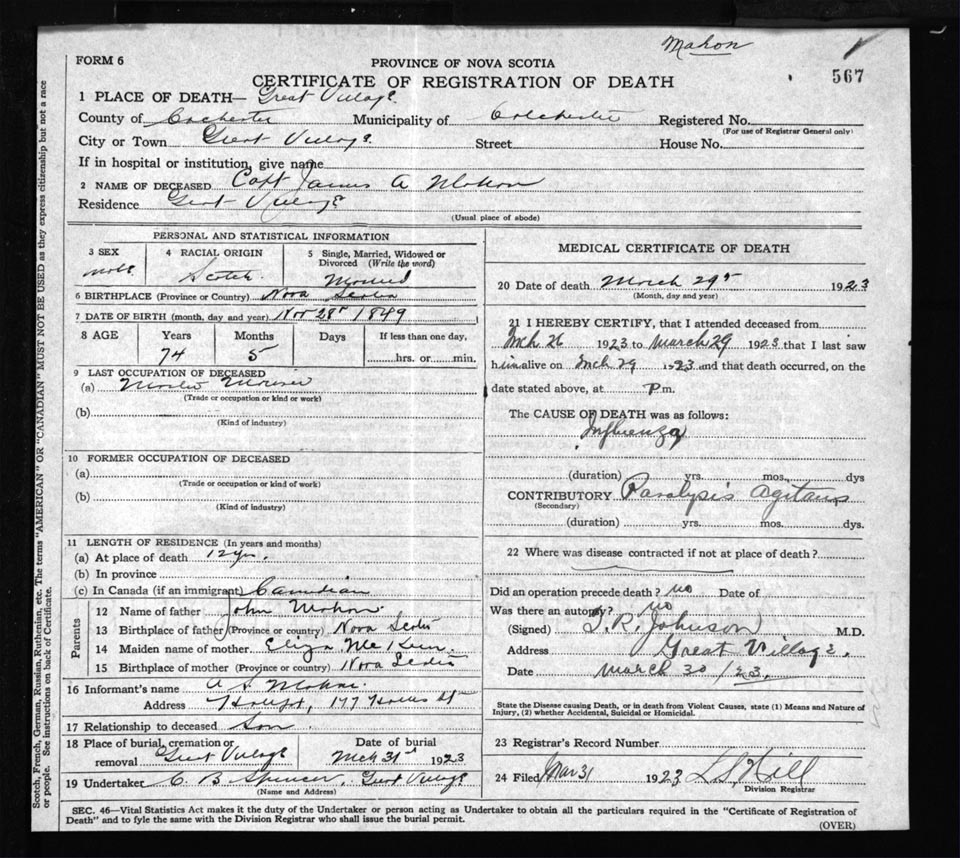 Mahon
567
FORM 6
PROVINCE OF NOVA SCOTIA
CERTIFICATE OF REGISTRATION OF DEATH
1 PLACE OF DEATH— Great Village
County of Colchester Municipality of Colchester Registered No.
(For use of Registrar General only)
City or Town Great Village Street House No.
If in hospital or institution, give name
2 NAME OF DECEASED Capt James A Mahon
Residence Great Village
(Usual place of abode)
PERSONAL AND STATISTICAL INFORMATION
3 SEX 4 RACIAL ORIGIN 5 Single, Married, Widowed or
Divorced (Write the word)
Male Scotch Married
6 BIRTHPLACE (Province or Country) Nova Scotia
7 DATE OF BIRTH (month, day and year) Nov 28 1849
8 AGE Years Months Days If less than one day,
74 5 hrs. or min.
9 LAST OCCUPATION OF DECEASED
(a) Master Mariner
(Trade or occupation or kind or work)
(b)
(Kind of industry)
10 FORMER OCCUPATION OF DECEASED
(a)
(Trade or occupation or kind of work)
(b)
(Kind of industry)
11 LENGTH OF RESIDENCE (In years and months)
(a) At place of death 12 yrs.
(b) In province
(c) In Canada (if an immigrant) Canadian
Parents
12 Name of father John Mahon
13 Birthplace of father (Province or country) Nova Scotia
14 Maiden name of mother Eliza
15 Birthplace of mother (Province or country) Nova Scotia
16 Informant's name A S Mahon
Address 177
17 Relationship to deceased Son
18 Place of burial, cremation or Date of burial
removal Great Village Mch 31st 1923
19 Undertaker C. B Spencer, Great Village
(Name and Address)
MEDICAL CERTIFICATE OF DEATH
20 Date of death March 29 1923
(Month, day and year)
21 I HEREBY CERTIFY, that I attended deceased from
Mch 26 1923 to March 29 1923 that I last saw
him alive on Mch 29 1923 and that death occurred, on the
date stated above, at P m.
The CAUSE OF DEATH was as follows:
Influenza
(duration) yrs. mos. dys
CONTRIBUTORY Paralysis agitans
(Secondary)
(duration) yrs. mos. dys.
22 Where was disease contracted if not at place of death?
Did an operation precede death? no Date of
Was there an autopsy? no
(Signed) T. R. Johnson M.D.
Address Great Village.
Date March 30/23.
State the Disease causing Death, or in death from Violent Causes, state (1) Means and Nature of
Injury, (2) whether Accidental, Suicidal or Homicidal.
23 Registrar's Record Number
24 Filed Mar 31 1923 Hill
Division Registrar
SEC. 46—Vital Statistics Act makes it the duty of the Undertaker or person acting as Undertaker to obtain all the particulars required in the "Certificate of Registration of
Death" and to fyle the same with the Division Registrar who shall issue the burial permit.
(OVER)
Scotch, French, German, Russian, Ruthenian, etc. The terms "AMERICAN" OR "CANADIAN" MUST NOT BE USED as they express citizenship but not a race
or people. See instructions on back of Certificate.